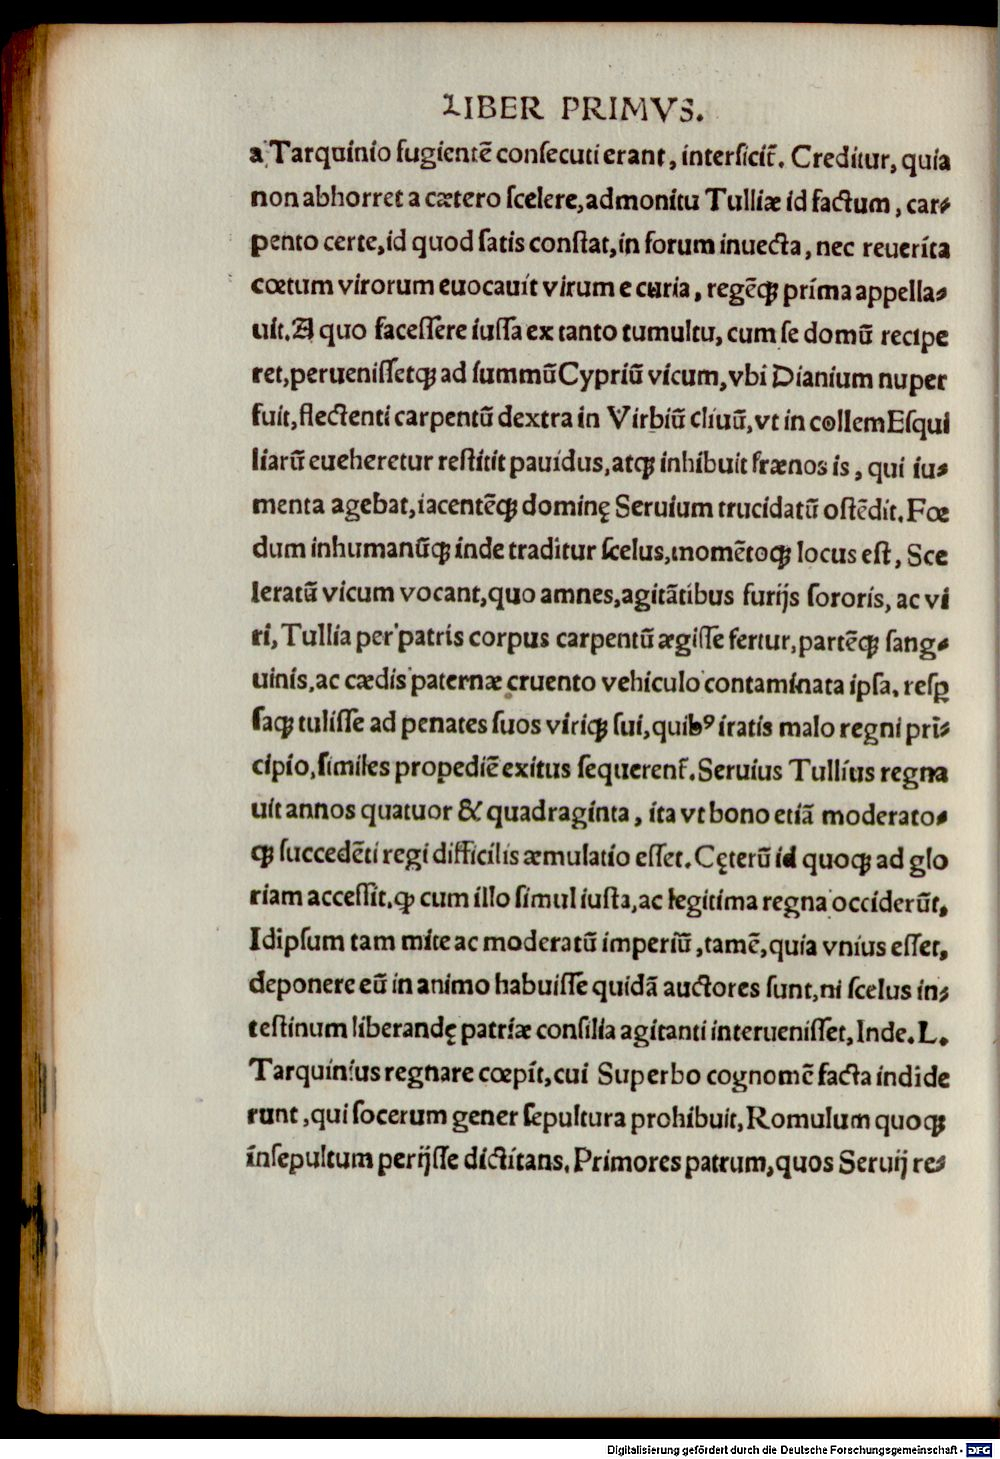 LIBER PRIMVS.
a Tarquinio fugientē consecuti erant, interficit̃. Creditur, quia
non abhorret a cætero scelere, admonitu Tulliæ id factum, car⸗
pento certe, id quod satis constat, in forum inuecta, nec reuerita
cœtum virorum euocauit virum e curia, regēq; prima appella⸗
uit. A quo facessere iussa ex tanto tumultu, cum se domū recipe
ret, peruenissetq; ad summū Cypriū vicum, vbi Dianium nuper
fuit, flectenti carpentū dextra in Virbiū cliuū, vt in collem Esqui
liarū eueheretur restitit pauidus, atq; inhibuit frænos is, qui iu⸗
menta agebat, iacentēq; dominę Seruium trucidatū ostēdit. Fœ
dum inhumanūq; inde traditur scelus, momētoq; locus est, Sce
leratū vicum vocant, quo amnes, agitātibus furijs sororis, ac vi
ri, Tullia per patris corpus carpentū ægisse fertur, partēq; sang⸗
uinis, ac cædis paternæ cruento vehiculo contaminata ipsa, resꝑ
saq; tulisse ad penates suos viriq; sui, quibꝰ iratis malo regni prī⸗
cipio, similes propediē exitus sequerent̃. Seruius Tullius regna
uit annos quatuor & quadraginta, ita vt bono etiā moderato⸗
q; succedēti regi difficilis æmulatio esset. Cęterū id quoq; ad glo
riam accessit, ꝙ cum illo simul iusta, ac legitima regna occiderūt,
Id ipsum tam mite ac moderatū imperiū, tamē, quia vnius esset,
deponere eū in animo habuisse quidā auctores sunt, ni scelus in⸗
testinum liberandę patriæ consilia agitanti interuenisset, Inde. L.
Tarquinius regnare cœpit, cui Superbo cognomē facta indide
runt, qui socerum gener sepultura prohibuit, Romulum quoq;
insepultum perijsse dictitans. Primores patrum, quos Seruij re⸗
Digitalisierung gefördert durch die Deutsche Forschungsgemeinschaft - DFG